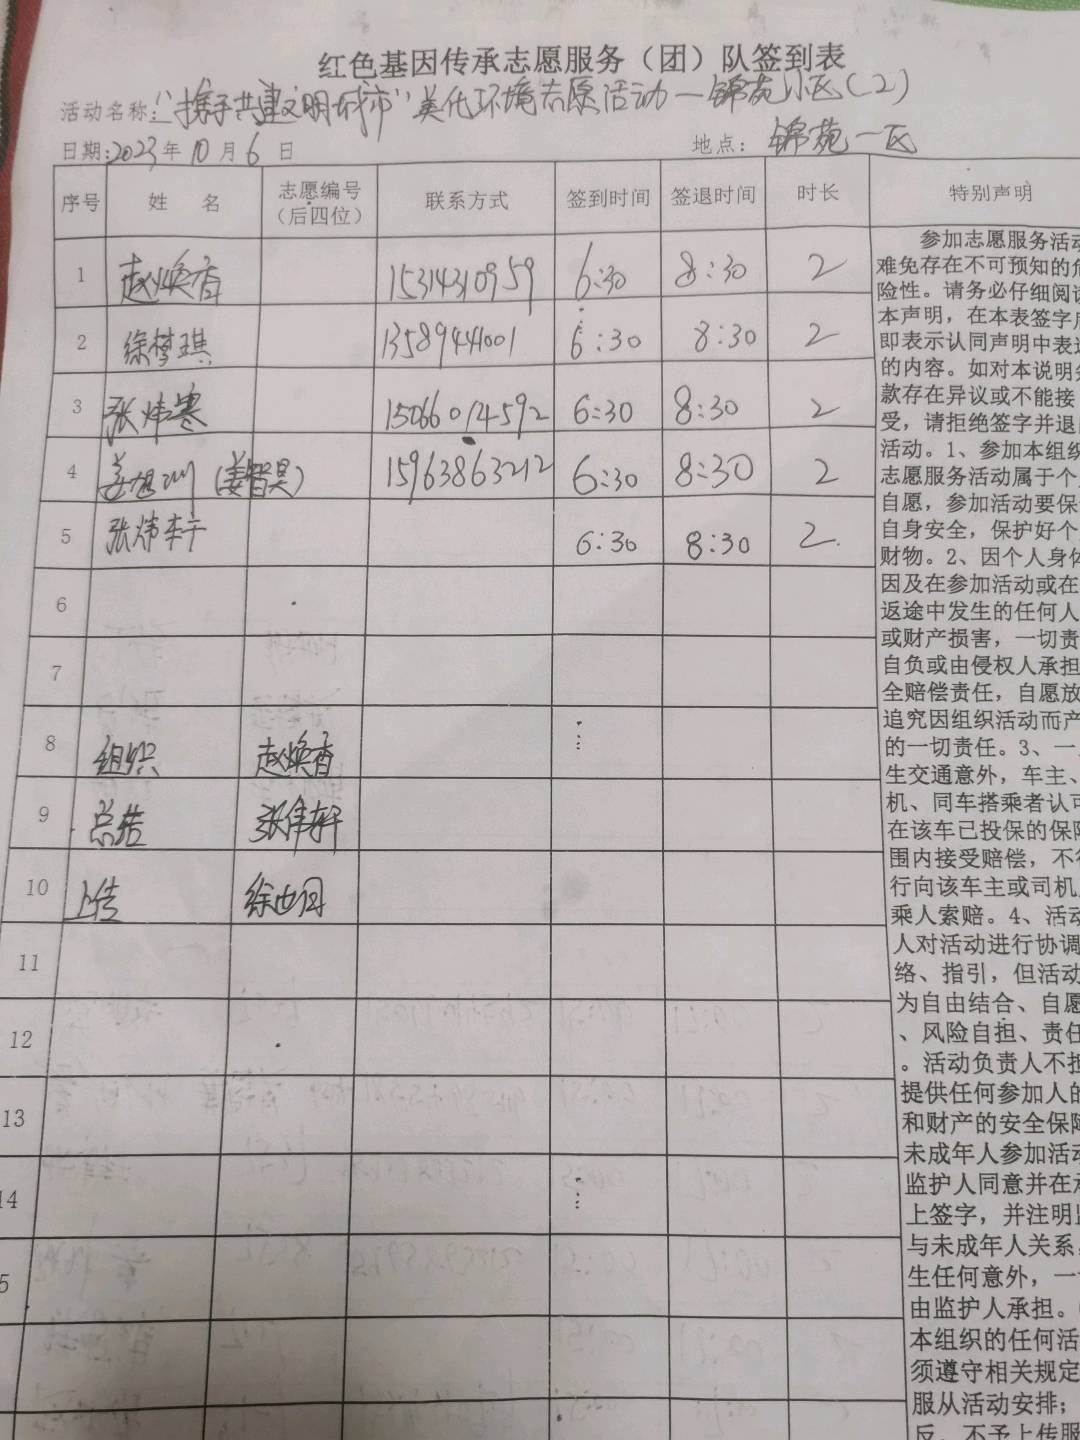 红色基因传承志愿服务（团）队签到表
活动名称:"携手共建文明城市"美化环境志愿活动—锦苑小区(2)
日期:2023年10月6日 地点：锦苑一区
序号 姓 名 志愿编号（后四位） 联系方式 签到时间 签退时间 时长 特别声明
1 赵焕香 15314310959 6:30 8:30 2
2 徐梦琪 13589444001 6:30 8:30 2
3 张炜寒 15066014592 6:30 8:30 2
4 姜旭川(姜智昊) 15963863212 6:30 8:30 2
5 张炜轩 6:30 8:30 2
6
7
8 组织 赵焕香
9 总结 张炜轩
10 上传 徐世国
11
12
13
14
5
参加志愿服务活动
难免存在不可预知的危
险性。请务必仔细阅读
本声明，在本表签字后
即表示认同声明中表述
的内容。如对本说明条
款存在异议或不能接
受，请拒绝签字并退出
活动。1、参加本组织
志愿服务活动属于个人
自愿，参加活动要保证
自身安全，保护好个人
财物。2、因个人身体
因及在参加活动或在
返途中发生的任何人
或财产损害，一切责
自负或由侵权人承担
全赔偿责任，自愿放
追究因组织活动而产
的一切责任。3、一
生交通意外，车主、
机、同车搭乘者认可
在该车已投保的保险
围内接受赔偿，不得
行向该车主或司机
乘人索赔。4、活动
人对活动进行协调
络、指引，但活动
为自由结合、自愿
、风险自担、责任
。活动负责人不担
提供任何参加人的
和财产的安全保障
未成年人参加活动
监护人同意并在承
上签字，并注明监
与未成年人关系，
生任何意外，一切
由监护人承担。
本组织的任何活
须遵守相关规定
服从活动安排；
反，不予上传服